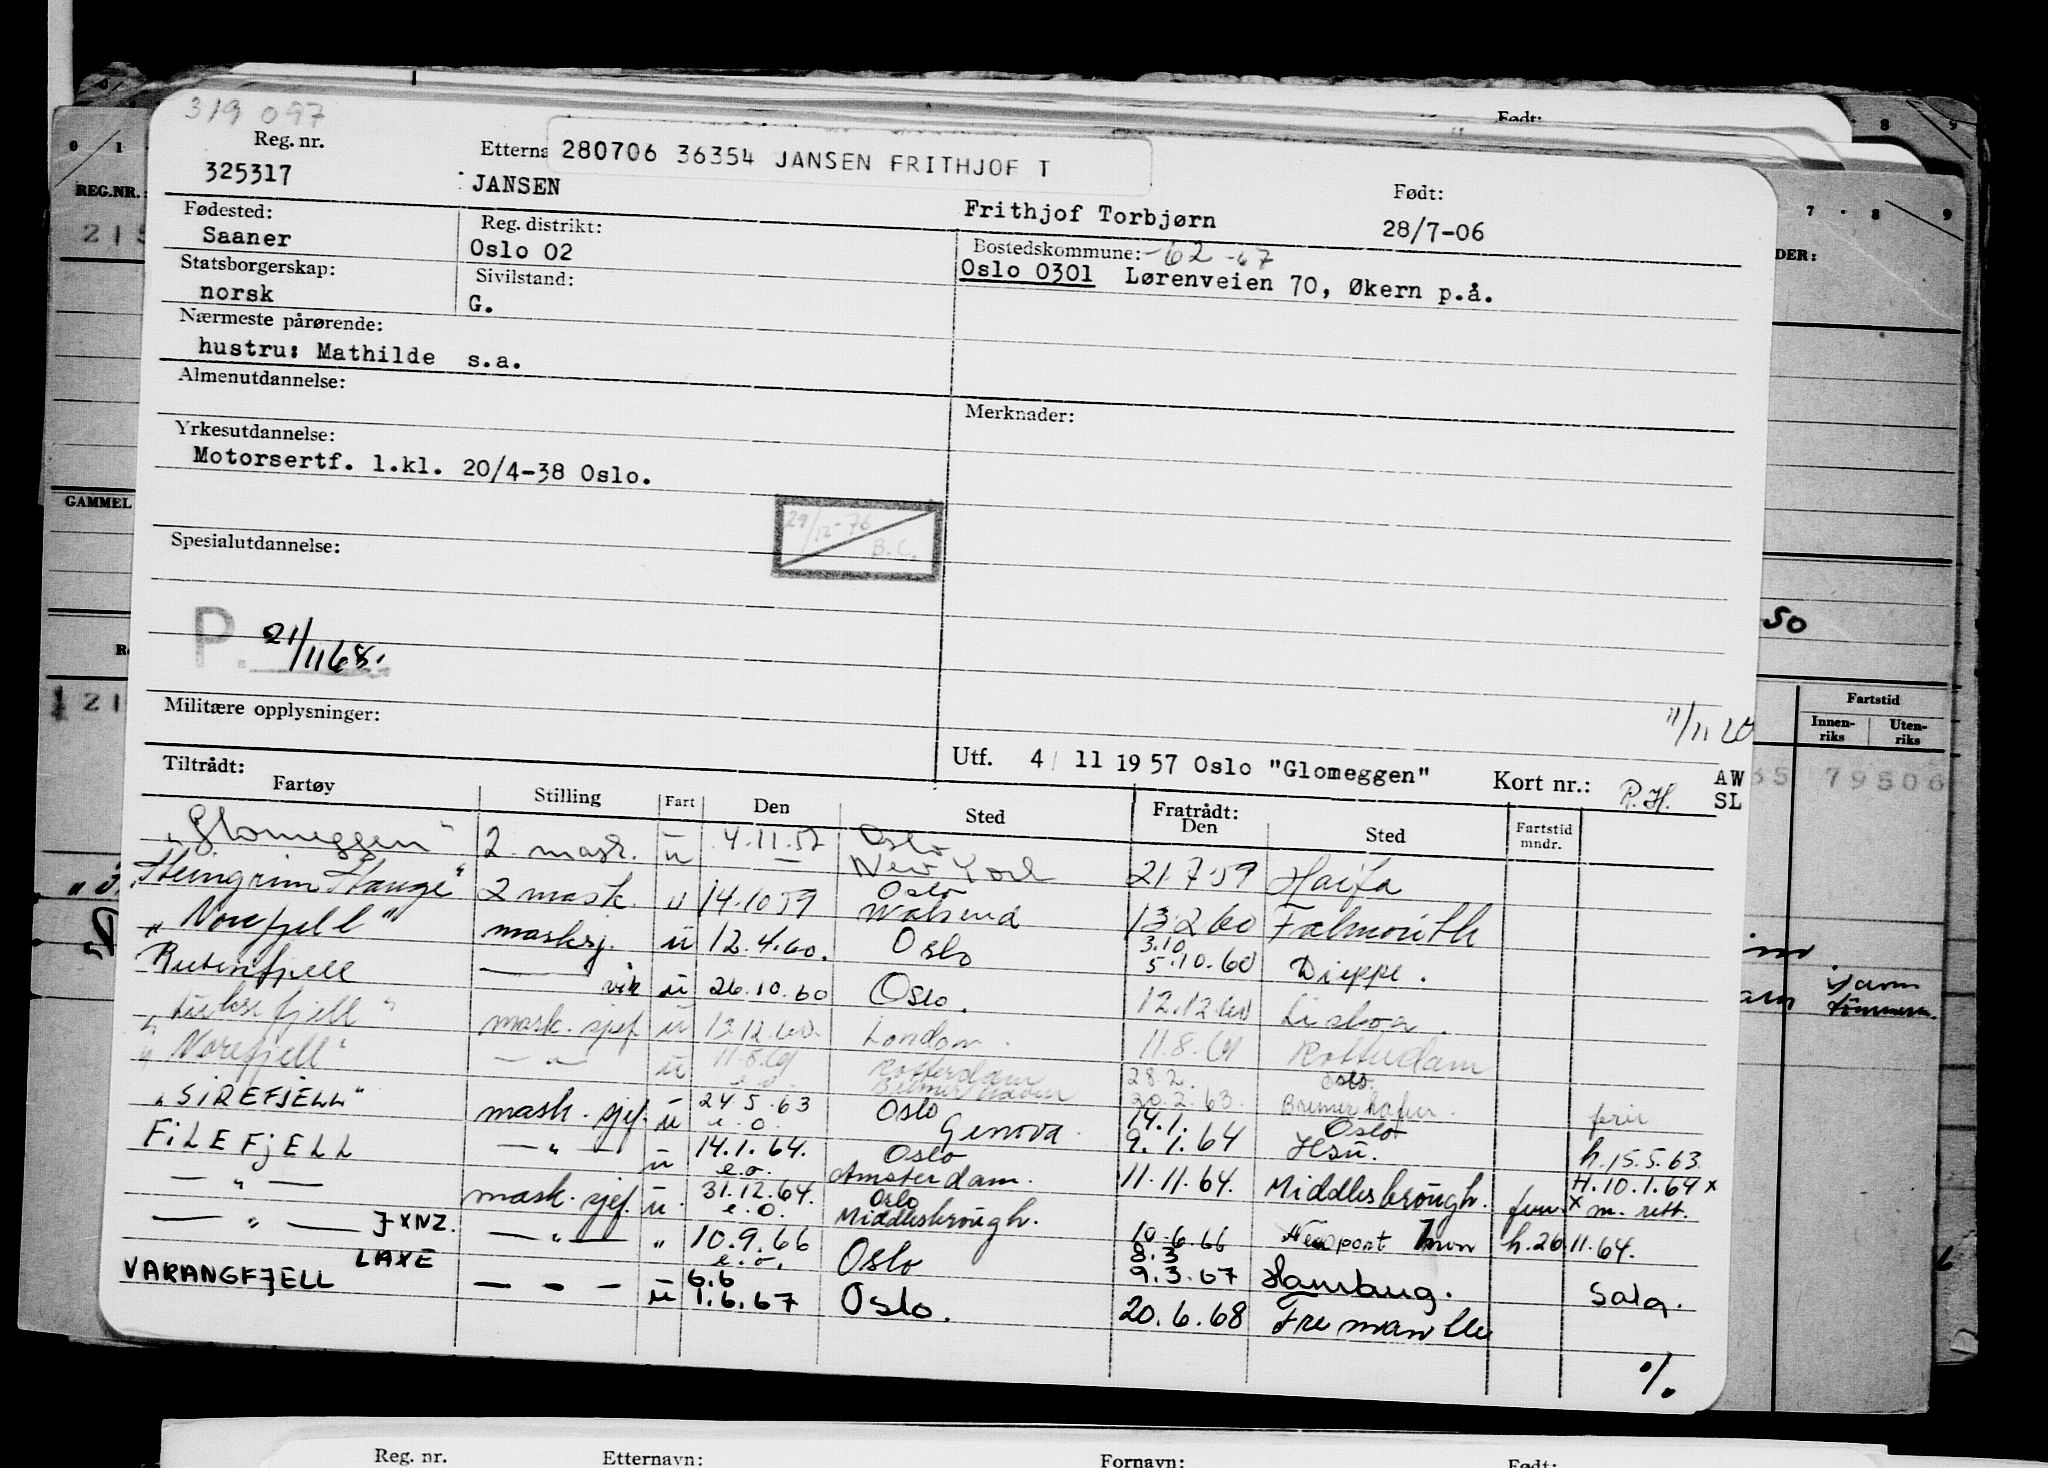 319 097
Født:
Reg. nr. Etterna 280706 36354 JANSEN FRITHJOF T Født:
325317 JANSEN Frithjof Torbjørn 28/7-06
Fødested: Reg. distrikt: Bostedskommune: -62 -67
Saaner Oslo 02 Oslo 0301 Lørenveien 70, Økern p.å.
Statsborgerskap: Sivilstand:
norsk G.
Nærmeste pårørende:
hustru: Mathilde s.a.
Almenutdannelse: Merknader:
Yrkesutdannelse:
Motorsertf. 1.kl. 20/4-38 Oslo.
29/12-76 B.C.
Spesialutdannelse:
P. 21/1168.
Militære opplysninger: 11/11 20
Utf. 4/ 11 1957 Oslo "Glomeggen" Kort nr.: R.H. AW SL
Tiltrådt: Fratrådt:
Fartøy Stilling Fart Den Sted Den Sted Fartstid mndr.
"Glomeggen" 2. mask. u 4.11.57 Oslo New York 21.7.59 Haifa
"Steingrim Hauge" 2 mask. u 14.10 59 Oslo 13.2.60 Falmouth
"Norefjell" masksj. u 12.4.60. Oslo 3.10 5.10.60 Dieppe.
Rutenfjell — vik u 26.10.60 Oslo. 12.12.60 Lisboa.
mask. sjef u 13.12.60. London. 11.8.61 Rotterdam
"Norefjell" — " — u 11.8.61 e.o. Rotterdam Bremerhaven 28.2. 20.2.63. Oslo Bremerhafen. ferie
"SIREFJELL" mask. sjef. u 24.5.63 e.o. Oslo Genova. 14.1. 9.1.64 Oslo h.15.5.63.
FILEFJELL — " — u 14.1.64. e.o. Oslo Amsterdam. 11.11.64. Middlesbrough. H.10.1.64 x
— " — mask. sjef. u. 31.12.64. e.o. Oslo Middlesbrough. 10.6.66 Newport Mon h.20.11.64. x m. rett.
— " — JXNZ. — " — " 10.9.66 e.o. Oslo 8.3 9.3.67 Hamburg. Salg.
LAXE
VARANGFJELL — - - u 6.6 1.6.67 Oslo. 20.6.68 Fremantle
%
REG.NR.:
GAMMEL
DER:
50
Fartstid
Innen-riks Uten-riks
79806
Reg. nr. Etternavn: Fornavn: Født: